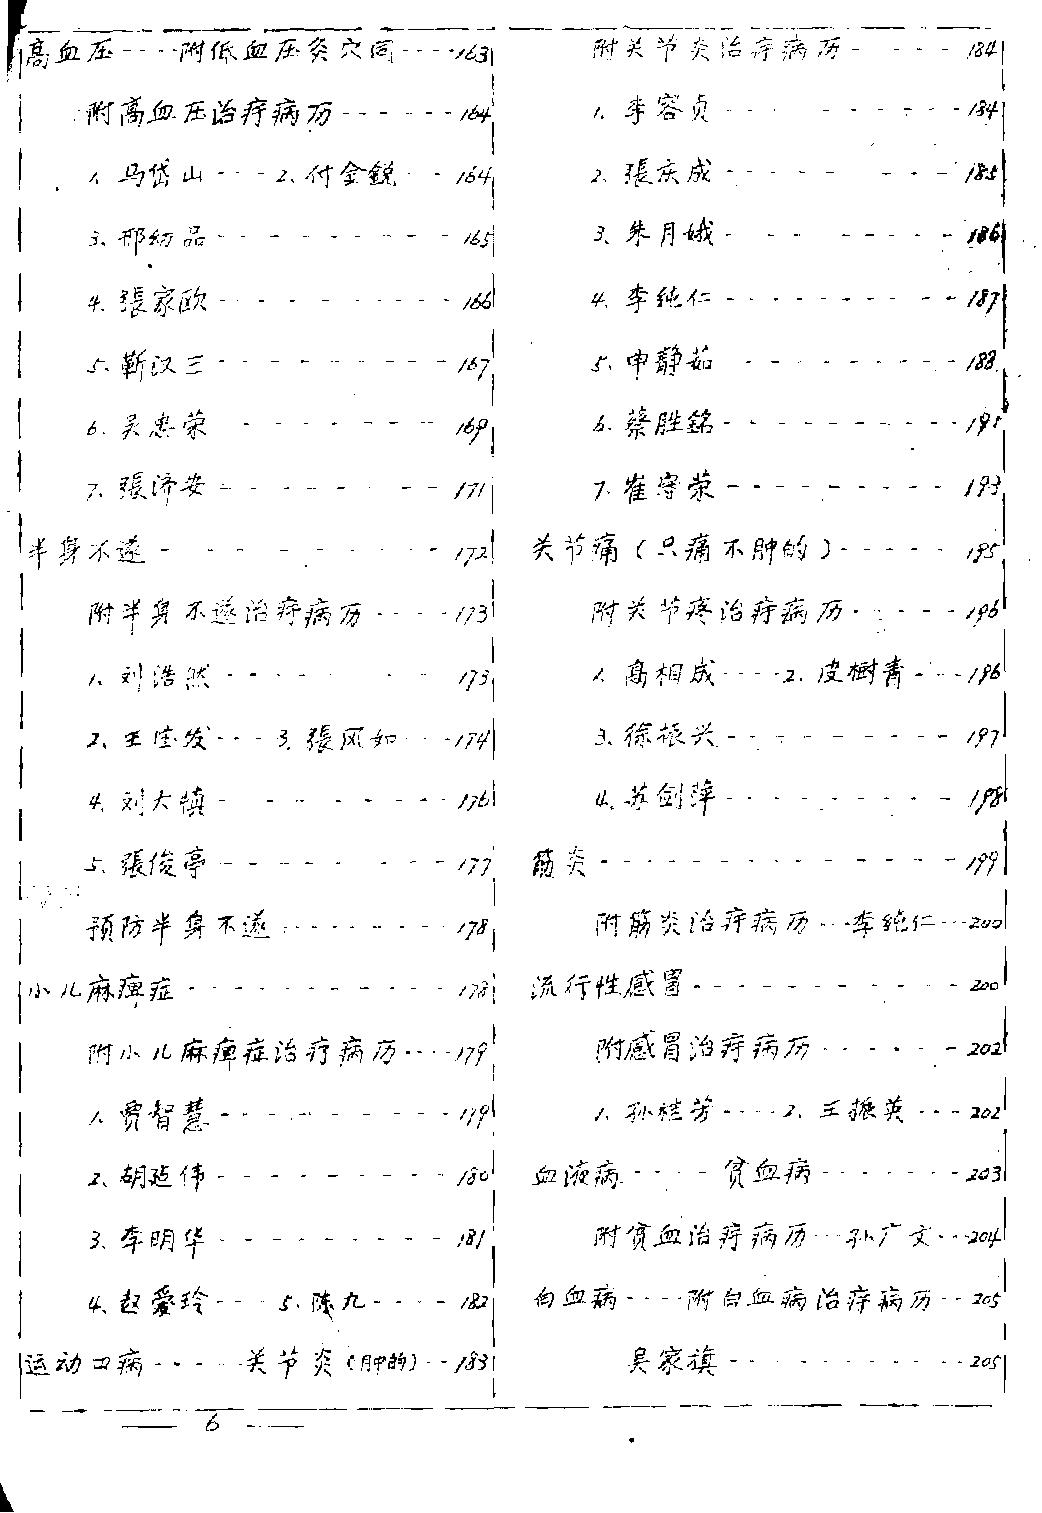 高血压----附低血压灸穴同----163
附高血压治疗病历------164
1、马岱山---2、付金銳--164
3、邢幼品---------165
4、張家欧---------166
5、靳汉三---------167
6、吴惠荣-------169
7、張济安--------171
半身不遂----------172
附半身不遂治疗病历----173
1、刘浩然--------173
2、王宝发---3、張风如---174
4、刘大慎---------176
5、張俊亭--------177
预防半身不遂--------178
小儿麻痺症----------178
附小儿麻痺症治疗病历----179
1、贾智慧---------179
2、胡延伟---------180
3、李明华---------181
4、赵爱玲---5、陈九----182
运动口病-----关节炎(肿的)--183
附关节炎治疗病历-----184
1、李容贞---------184
2、張庆成--------185
3、朱月娥---------186
4、李纯仁---------187
5、申静茹--------188
6、蔡胜銘---------191
7、崔守荣--------193
关节痛(只痛不肿的)-----195
附关节疼治疗病历-----196
1、高相成----2、皮樹青---196
3、徐振兴---------197
4、苏剑萍---------198
筋炎--------------199
附筋炎治疗病历--李纯仁--200
流行性感冒-----------200
附感冒治疗病历------202
1、孙桂芳----2、王振英---202
血液病-----贫血病-------203
附贫血治疗病历--孙广文--204
白血病----附白血病治疗病历--205
吴家旗---------205
6